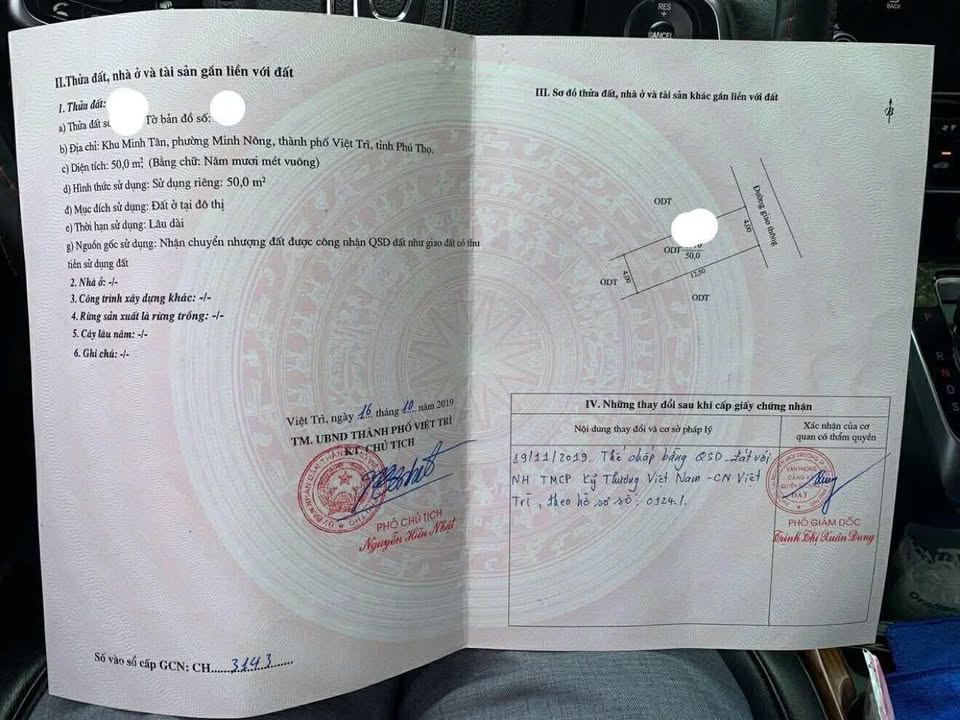 II.Thửa đất, nhà ở và tài sản gắn liền với đất
1. Thửa đất:
a) Thửa đất số Tờ bản đồ số:
b) Địa chỉ: Khu Minh Tân, phường Minh Nông, thành phố Việt Trì, tỉnh Phú Thọ.
c) Diện tích: 50,0 m², (Bằng chữ: Năm mươi mét vuông)
d) Hình thức sử dụng: Sử dụng riêng: 50,0 m²
đ) Mục đích sử dụng: Đất ở tại đô thị
e) Thời hạn sử dụng: Lâu dài
g) Nguồn gốc sử dụng: Nhận chuyển nhượng đất được công nhận QSD đất như giao đất có thu
tiền sử dụng đất
2. Nhà ở: -/-
3. Công trình xây dựng khác: -/-
4. Rừng sản xuất là rừng trồng: -/-
5. Cây lâu năm: -/-
6. Ghi chú: -/-
Việt Trì, ngày 16 tháng 10 năm 2019
TM. UBND THÀNH PHỐ VIỆT TRÌ
KT. CHỦ TỊCH
PHÓ CHỦ TỊCH
Nguyễn Hữu Nhật
Số vào sổ cấp GCN: CH....3143......
III. Sơ đồ thửa đất, nhà ở và tài sản khác gắn liền với đất
B
ODT
Đường giao thông
4,00
ODT
50,0
12,50
4,00
ODT
ODT
IV. Những thay đổi sau khi cấp giấy chứng nhận
Nội dung thay đổi và cơ sở pháp lý
Xác nhận của cơ
quan có thẩm quyền
19/11/2019. Thế chấp bằng QSD đất với
NH TMCP Kỹ Thương Việt Nam - CN Việt
Trì, theo hồ sơ số: 0124./.
VĂN PHÒNG
ĐĂNG KÝ
ĐẤT
PHÓ GIÁM ĐỐC
Trịnh Thị Xuân Dung
RES
+
CANCEL
BACK
P
R
N
D
S